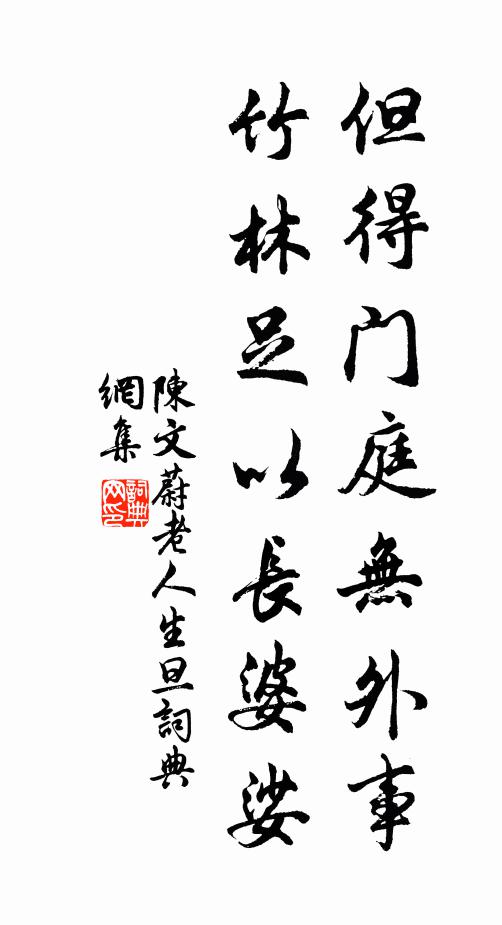 但得門庭無外事
竹林足以長婆娑
陳文蔚老人生旦詞典
網集
詞典
网印